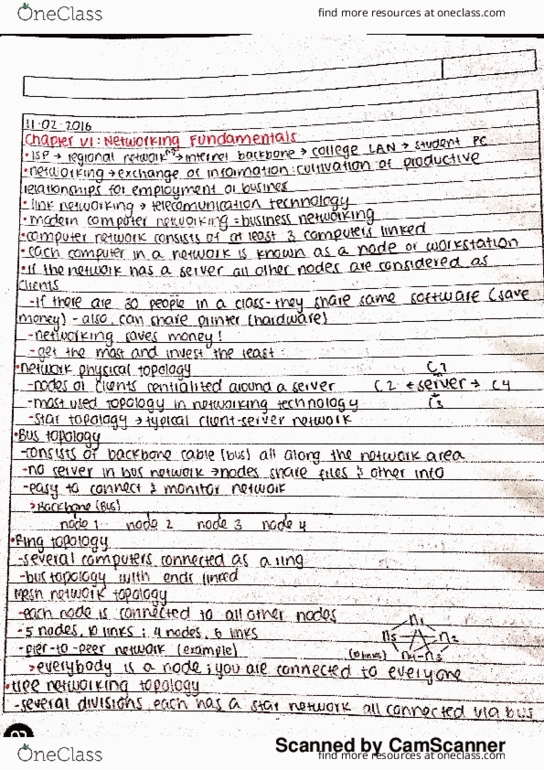 OneClass
find more resources at oneclass.com
11.02.2016
Chapter VI: Networking Fundamentals
•ISP → regional network → internet backbone → college LAN → student PC
•networking → exchange of information: cultivation of productive
relationships for employment or busines
•link networking → telecomunication technology
•modern computer networking = business networking
•computer network consists of at least 3 computers linked
•each computer in a network is known as a node or workstation
•if the network has a server all other nodes are considered as
clients
-if there are 30 people in a class - they share same software (save
money) - also can share printer (hardware)
-networking saves money!
-get the most and invest the least
•network physical topology
C1
-nodes or clients centralited around a server
C2 ← server → C4
-most used topology in networking technology
C3
-star topology → typical client-server network
•Bus topology
-consists of backbone cable (bus) all along the network area
-no server in bus network → nodes share files & other info
-easy to connect & monitor network
>Backbone (Bus)
node 1 node 2 node 3 node 4
•Ring topology
-several computers connected as a ring
-bus topology with ends linked
Mesh network topology
-each node is connected to all other nodes
n1
-5 nodes, 10 links ; 4 nodes, 6 links
n5 n2
-pier-to-peer network (example)
(10 links) n4 - n3
>everybody is a node ; you are connected to everyone
•tree networking topology
-several divisions each has a star network all connected via bus
Scanned by CamScanner
OneClass
find more resources at oneclass.com